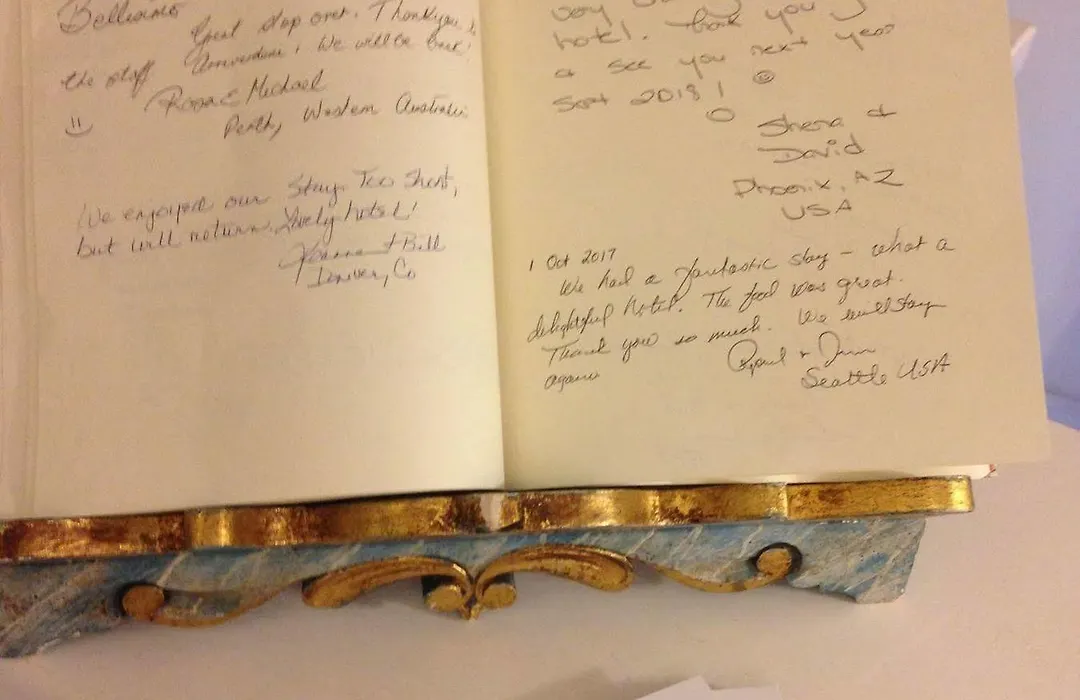 Bellissimo
Great stop over. Thankyou to
the staff Amendola! We will be back!
Rosa & Michael
Perth, Western Australia
We enjoyed our stay. Too short,
but will return. Lovely hotel!
+ Bill
Denver, Co
very
hotel. Thank you
& see you next year
Sept 2018!
Shera &
David
Phoenix, AZ
USA
1 Oct 2017
We had a fantastic stay – what a
delightful hotel. The food was great.
Thank you so much. We will stay
again
+
Seattle USA